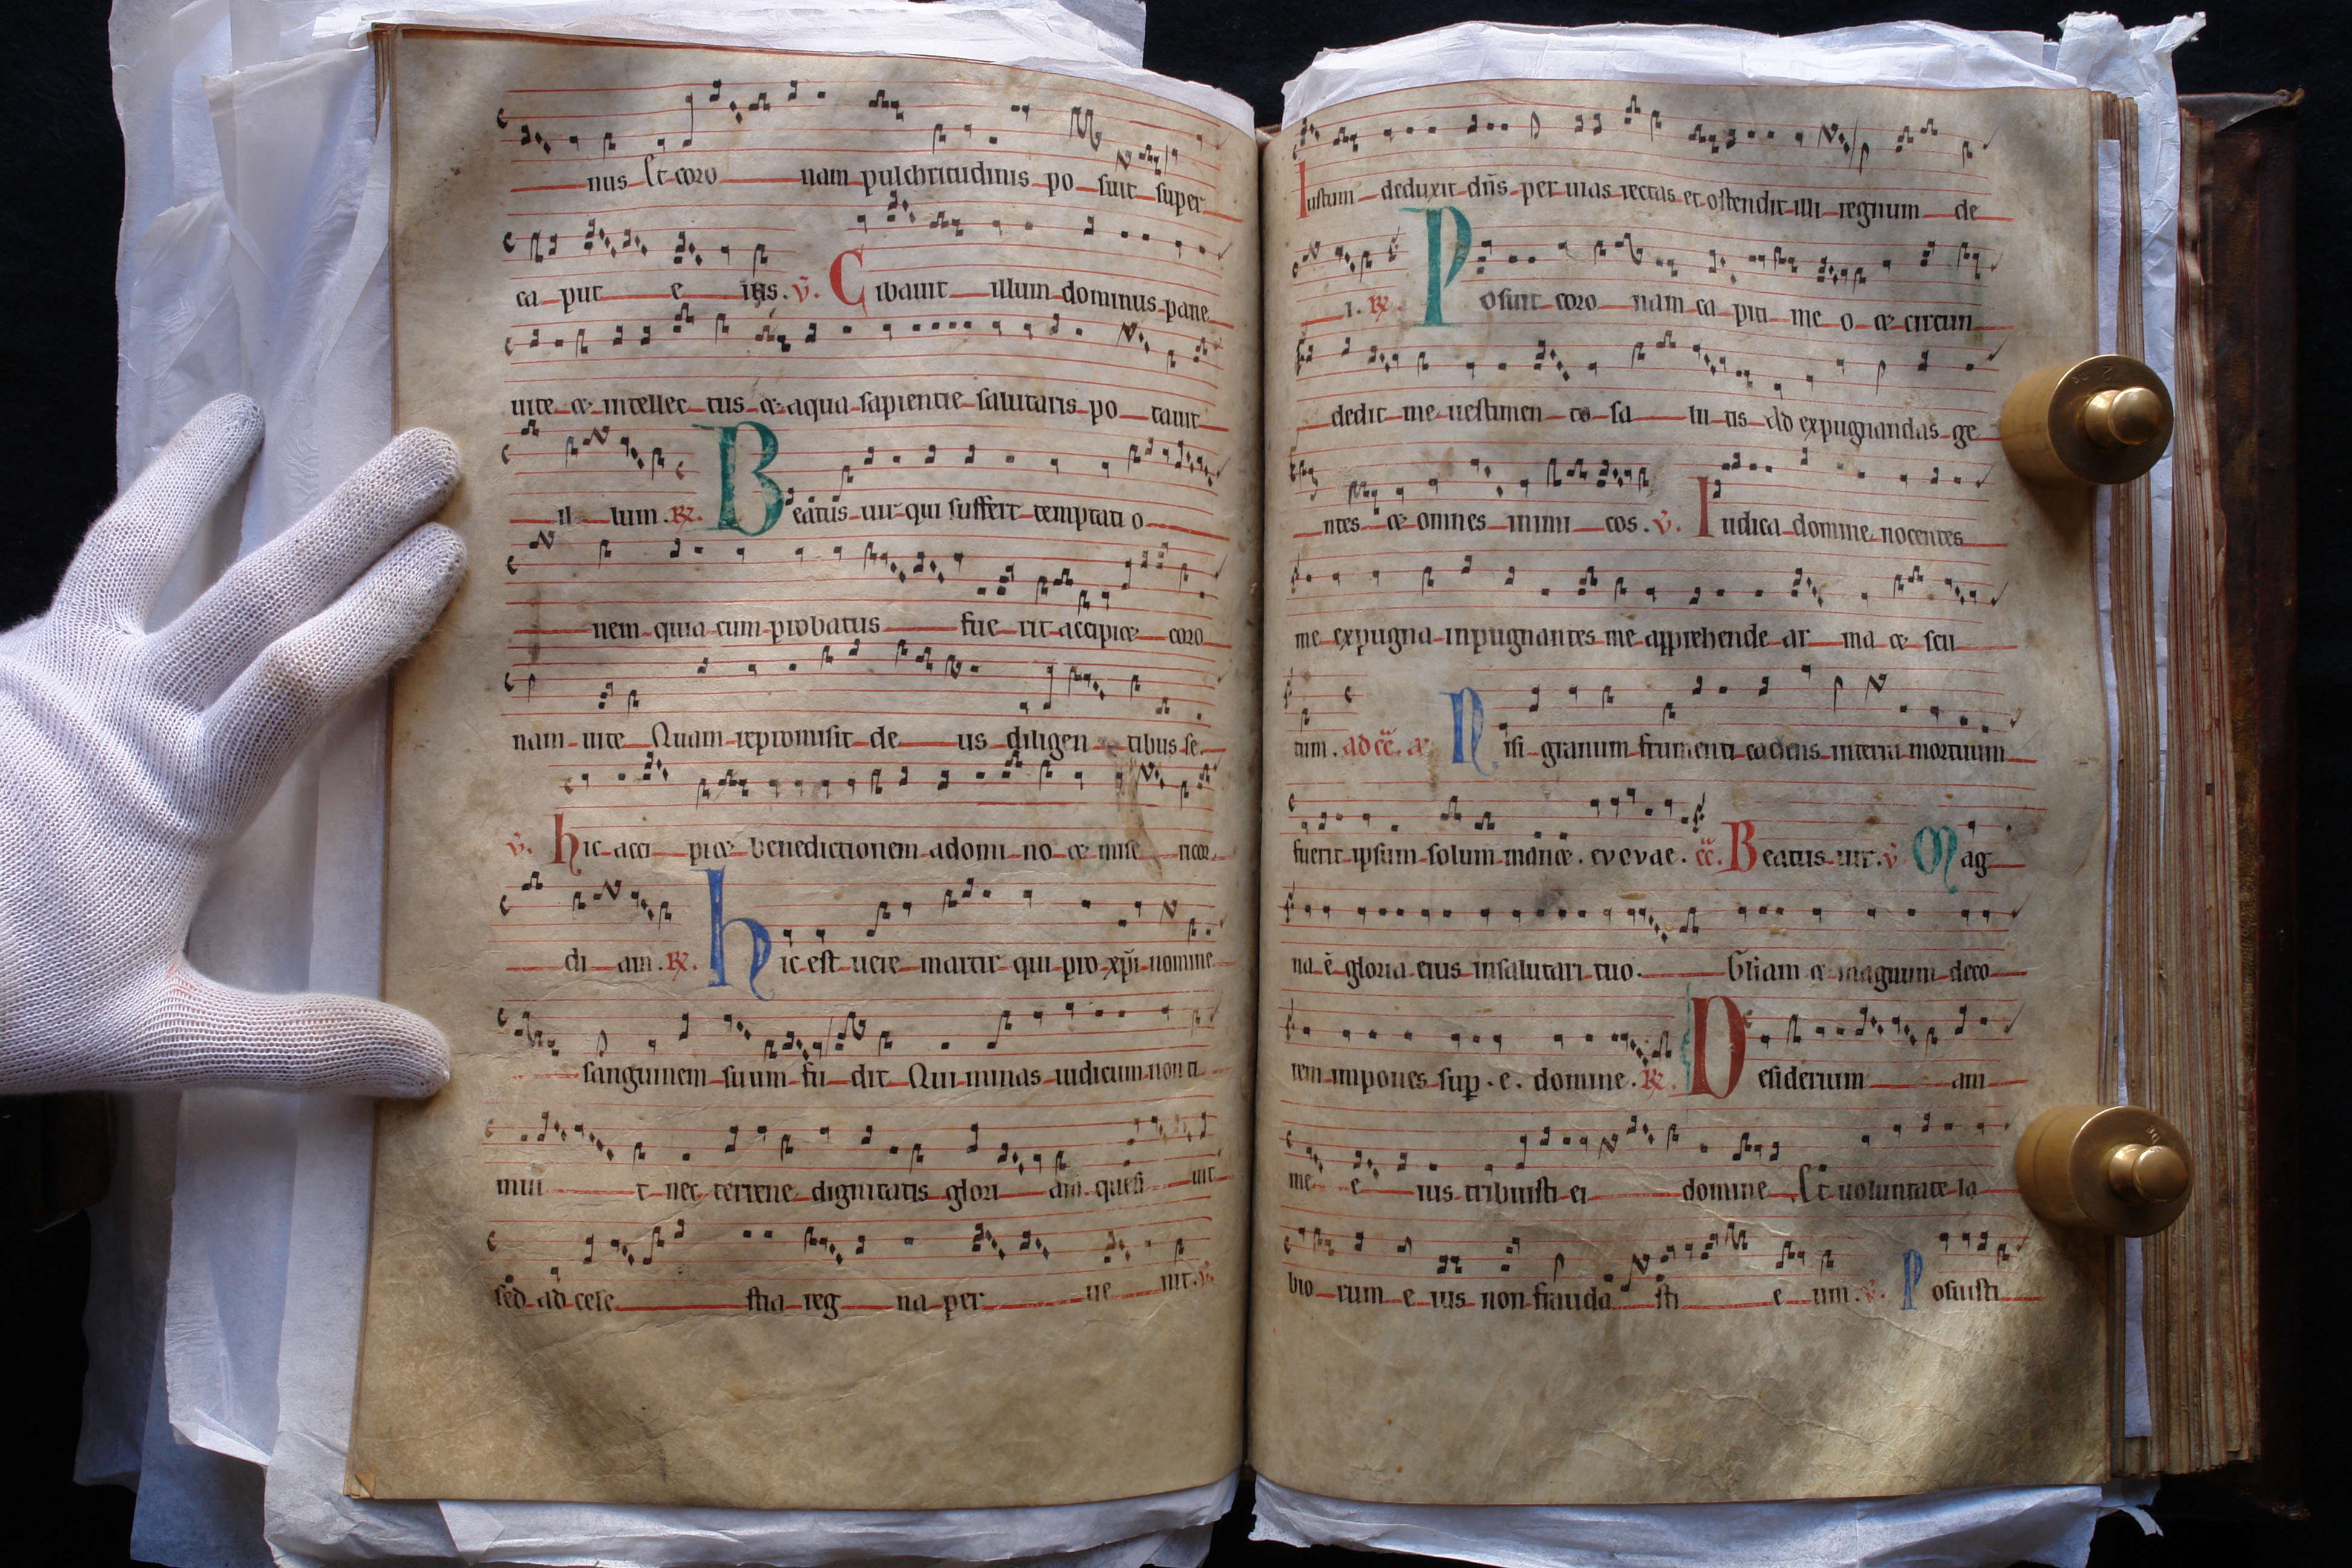 nus Et coro nam pulchritudinis po suit super
ca put e ius. V. Cibauit illum dominus pane
uite et intellec tus et aqua sapientie salutaris po tauit
il lum. R. Beatus uir qui suffert temptati o
nem quia cum probatus fue rit accipiet coro
nam uite Quam repromisit de us diligen tibus se.
V. hic acci piet benedictionem adomi no et mise ricor
di am. R. hic est uere martir qui pro xpi nomine
sanguinem suum fu dit Qui minas iudicum non ti
mui t nec terrene dignitatis glori am quesi uit
sed ad cele stia reg na per ue nit. V.
Iustum deduxit dns per uias rectas et ostendit illi regnum de
i. R. Posuit coro nam ca piti me o et circun
dedit me uestimen to sa lu tis Ad expugnandas ge
ntes et omnes inimi cos. V. Iudica domine nocentes
me expugna inpugnantes me apprehende ar ma et scu
tum. ad cc. a Nisi granum frumenti cadens interra mortuum
fuerit ipsum solum manet. evovae. cc. Beatus uir. V Mag
na e gloria eius insalutari tuo. Gliam et magnum deco
rem impones sup. e. domine. R. Desiderium ani
me e ius tribuisti ei domine Et uoluntate la
bio rum e ius non frauda sti e um. V. Posuisti